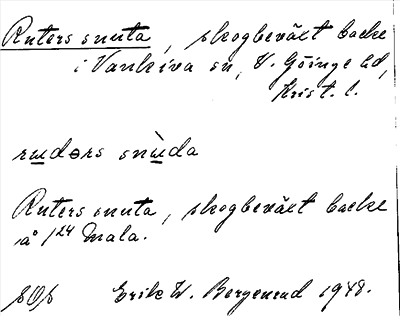 Ruters snuta, skogbeväxt backe
i Vankiva sn, V. Göinge hd,
Krist. l.
rɯdɘrs snɯ̀da
Ruters snuta, skogbeväxt backe
å 1/24 Mala.
Erik W. Bergenrud 1948.